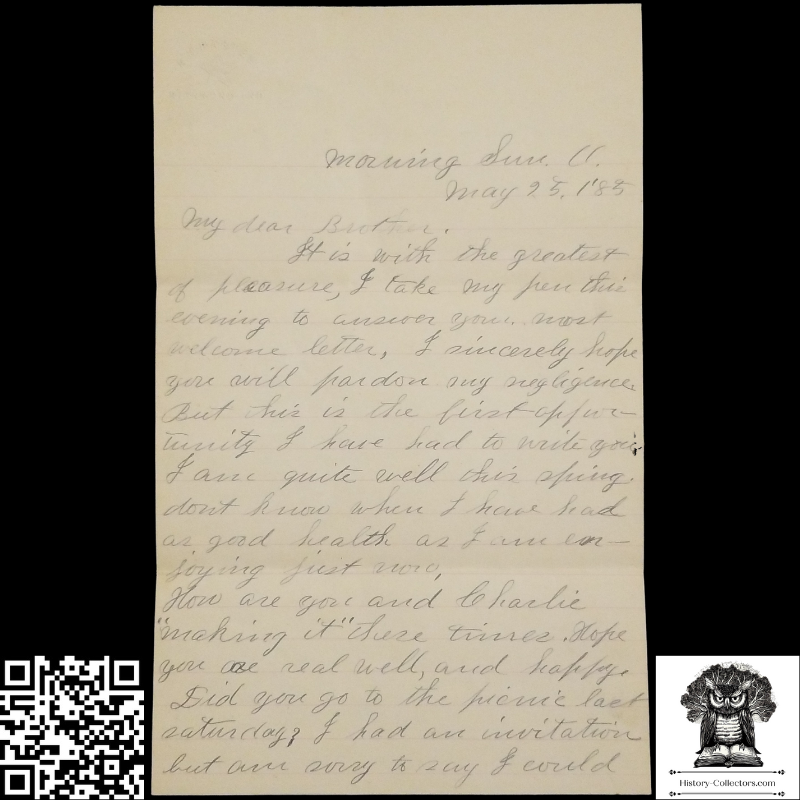 Morning Sun. O.
May 25. 1'85
My dear Brother.
It is with the greatest
of pleasure, I take my pen this
evening to answer your most
welcome letter, I sincerely hope
you will pardon my negligence.
But this is the first oppor-
tunity I have had to write you.
I am quite well this sping.
dont know when I have had
as good health as I am en-
joying just now,
How are you and Charlie
"making it" these times. Hope
you are real well, and happy.
Did you go to the picnic last
saturday? I had an invitation
but am sorry to say I could
History-Collectors.com